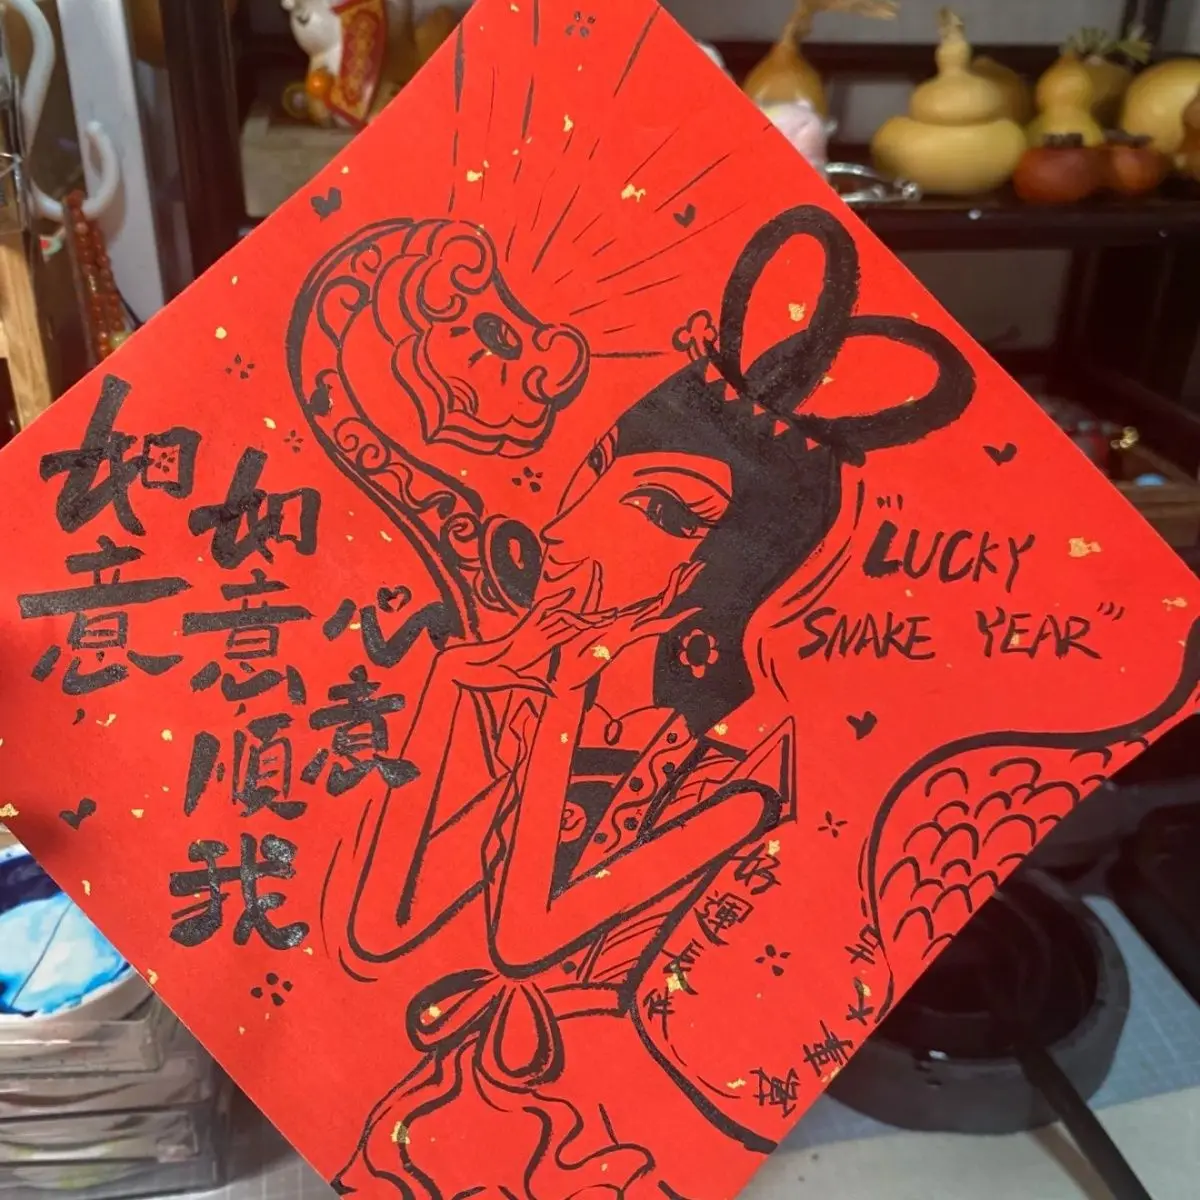 如意,
如意,順我
心意
"LUCKY
SNAKE YEAR"
萬事大吉